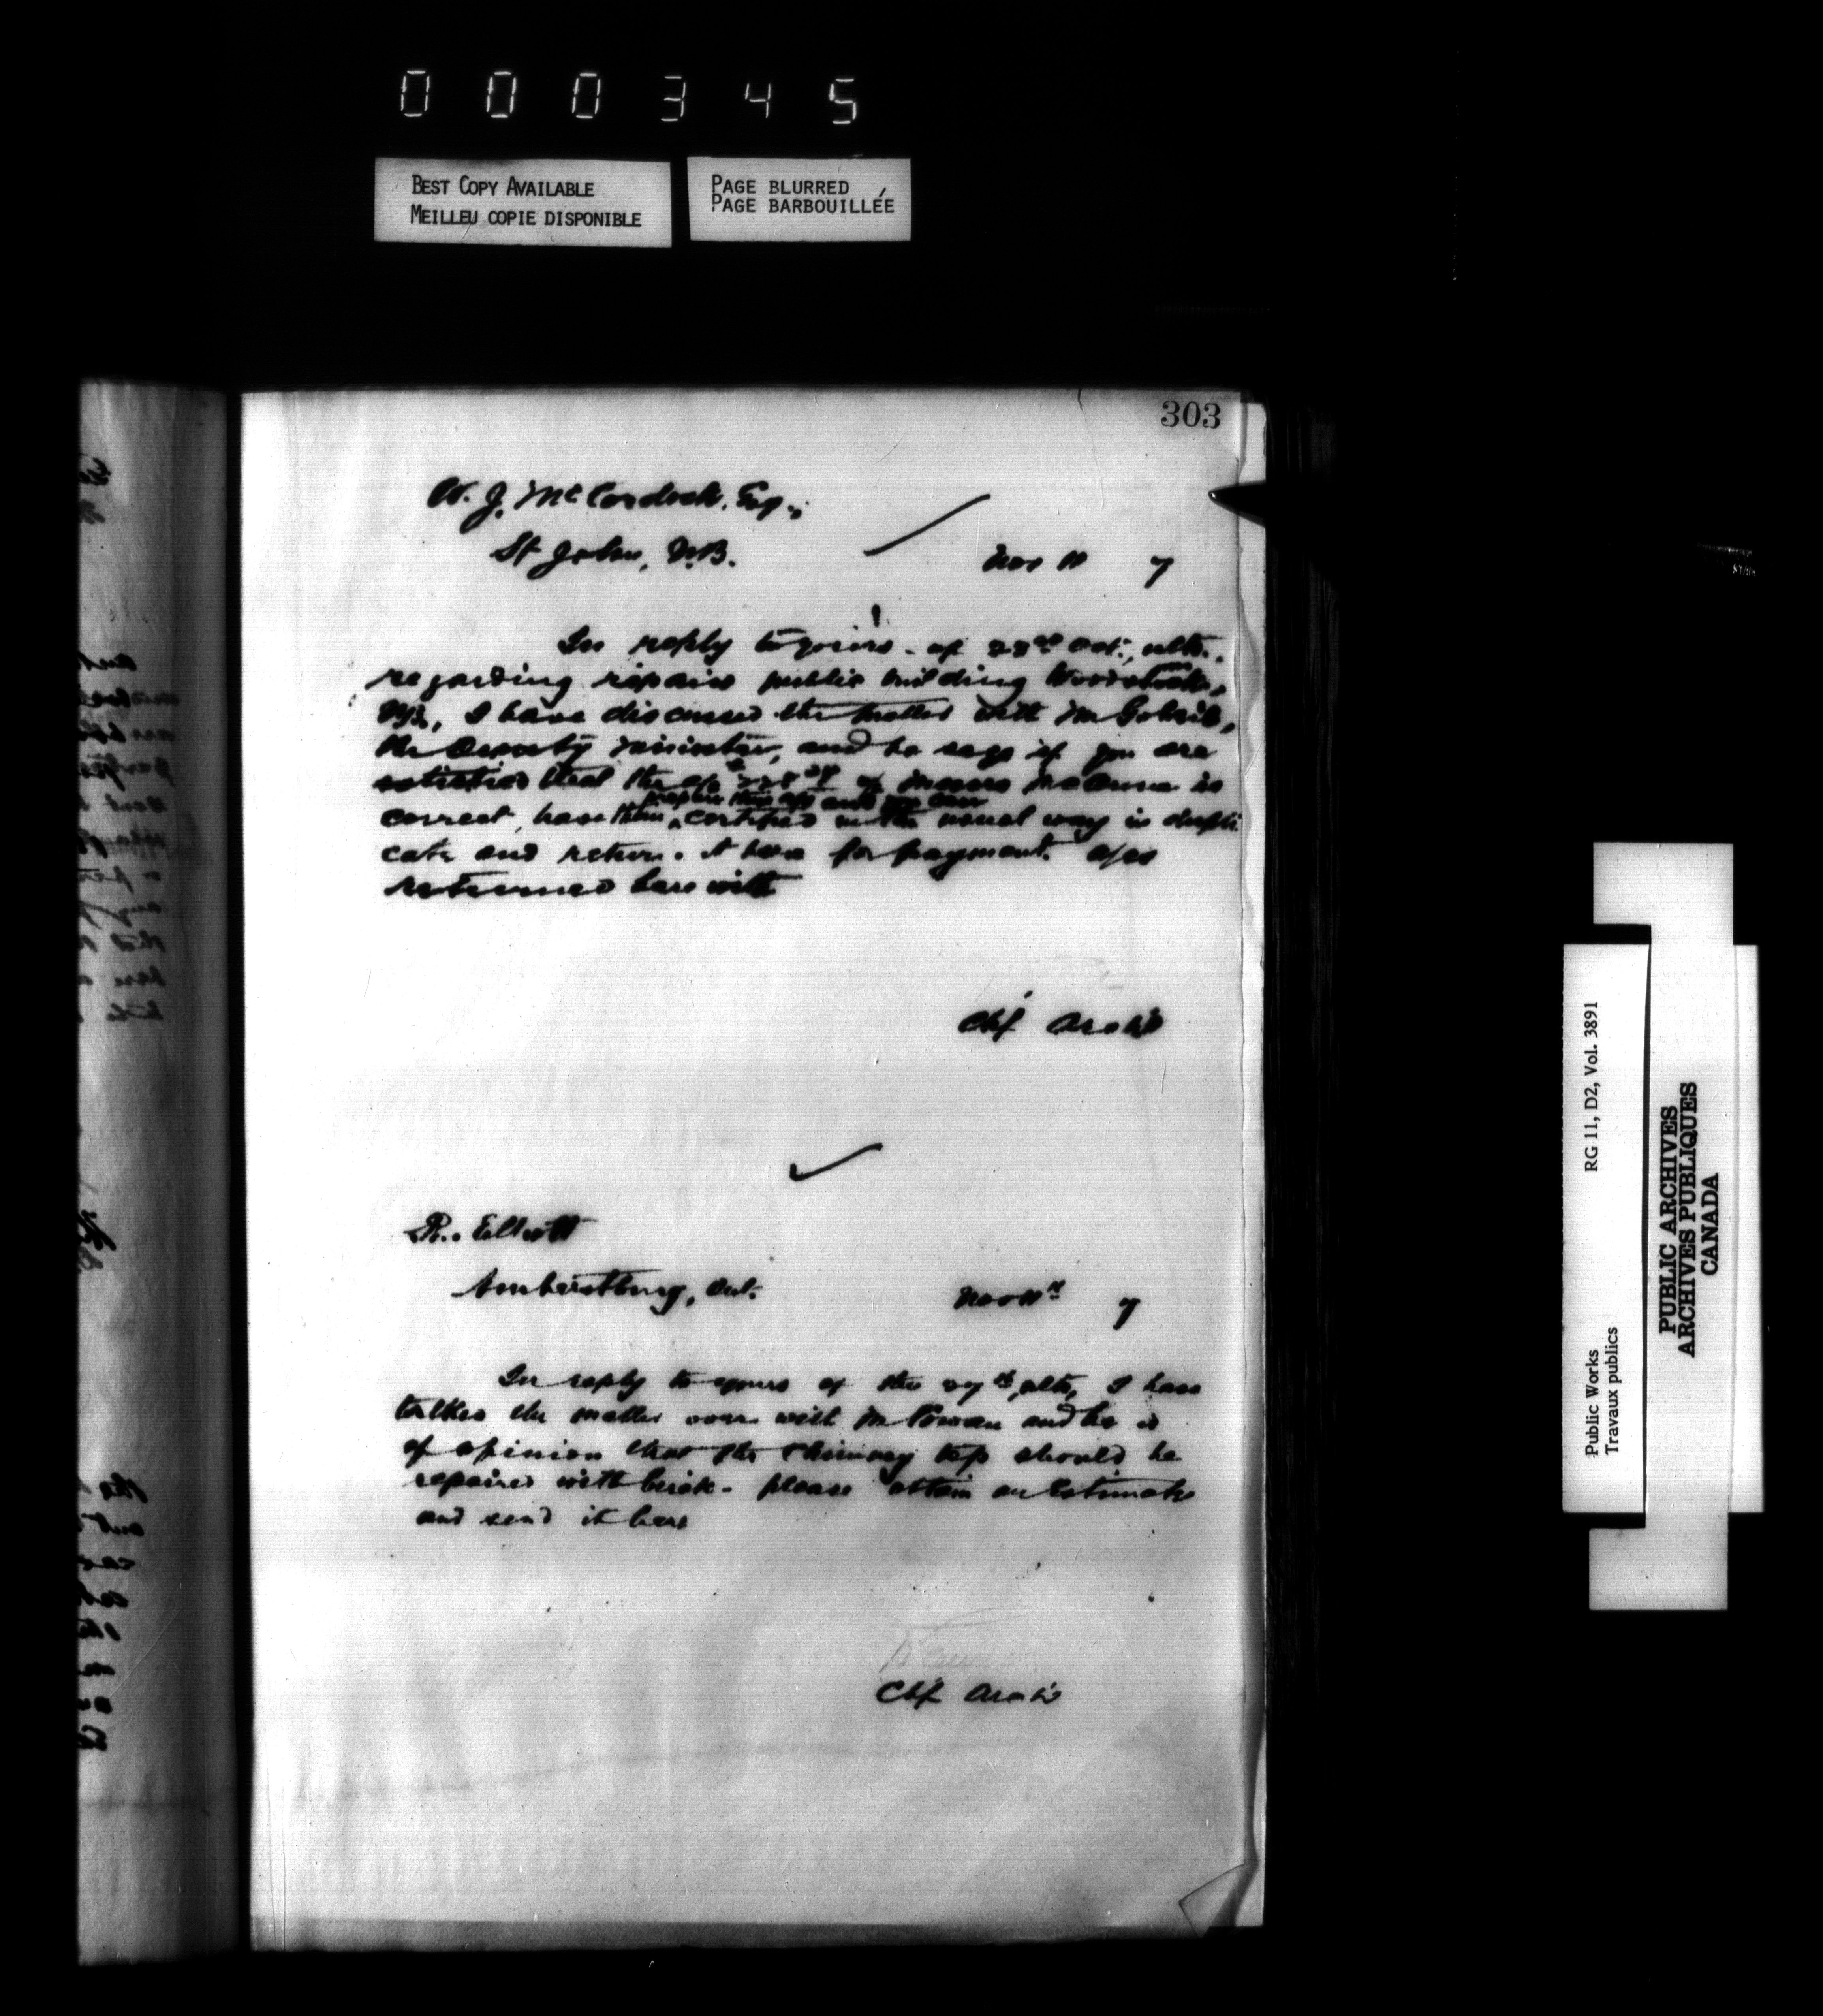 000345
BEST COPY AVAILABLE
MEILLEU COPIE DISPONIBLE
PAGE BLURRED
PAGE BARBOUILLÉE
303
W. J. McCordock, Esq.,
St John, N.B.
Nov 11 7
In reply to yours of Oct., ulto.,
regarding repairs public building Woodstock,
N.B., I have discussed the matter with Mr Gobeil,
the Deputy Minister, and he says if you are
satisfied that the a/c of Messrs is
prepare this a/c and
correct, have them certified in the usual way in dupli
cate and return it here for payment. a/cs
returned herewith
Chf Archt
R. Elliott
Amherstburg, Ont.
Nov 11th 7
In reply to yours of the 27th ulto, I have
talked the matter over with Mr Rowan and he is
of opinion that the chimney top should be
repaired with brick. please obtain an Estimate
and send it here
Chf Archt
Public Works
Travaux publics
RG 11, D2, Vol. 3891
PUBLIC ARCHIVES
ARCHIVES PUBLIQUES
CANADA